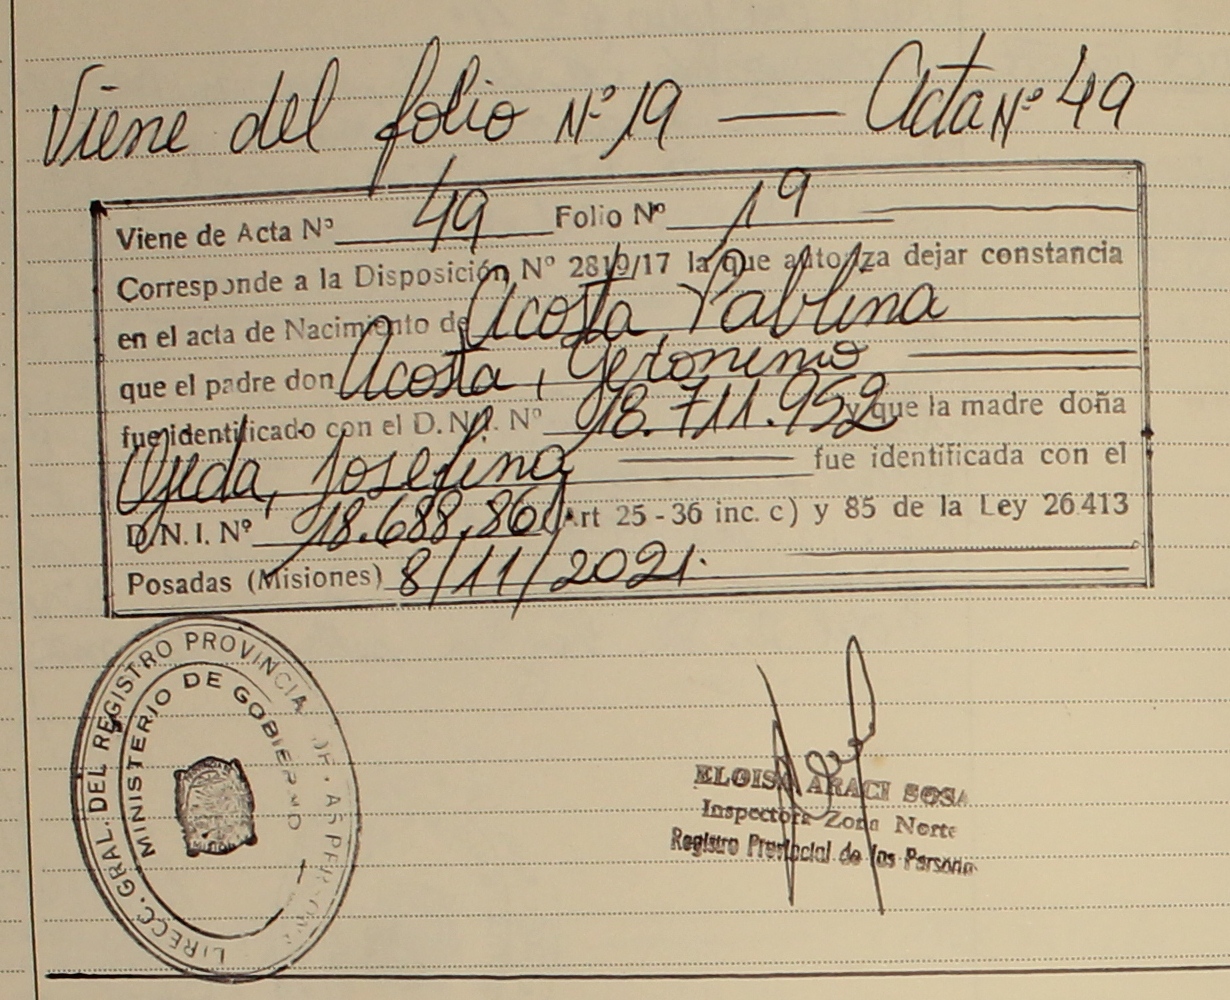 Viene del folio Nº 19 — Acta Nº 49
Viene de Acta Nº 49 Folio Nº 19
Corresponde a la Disposición Nº 2810/17 la que autoriza dejar constancia
en el acta de Nacimiento de Acosta, Pablina
que el padre don Acosta, Geronimo
fue identificado con el D. N. I. Nº 98.711.952 y que la madre doña
Ojeda, Josefina fue identificada con el
D. N. I. Nº 98.688,860 (Art 25 - 36 inc. c) y 85 de la Ley 26.413
Posadas (Misiones) 8/11/2021.
DIRECC. GRAL. DEL REGISTRO PROVINCIAL DE LAS PERSONAS
MINISTERIO DE GOBIERNO
ELOISA ARACI SOSA
Inspectora Zona Norte
Registro Provincial de las Personas